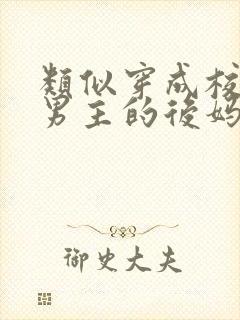 類似穿成
男主的後媽
御史大夫